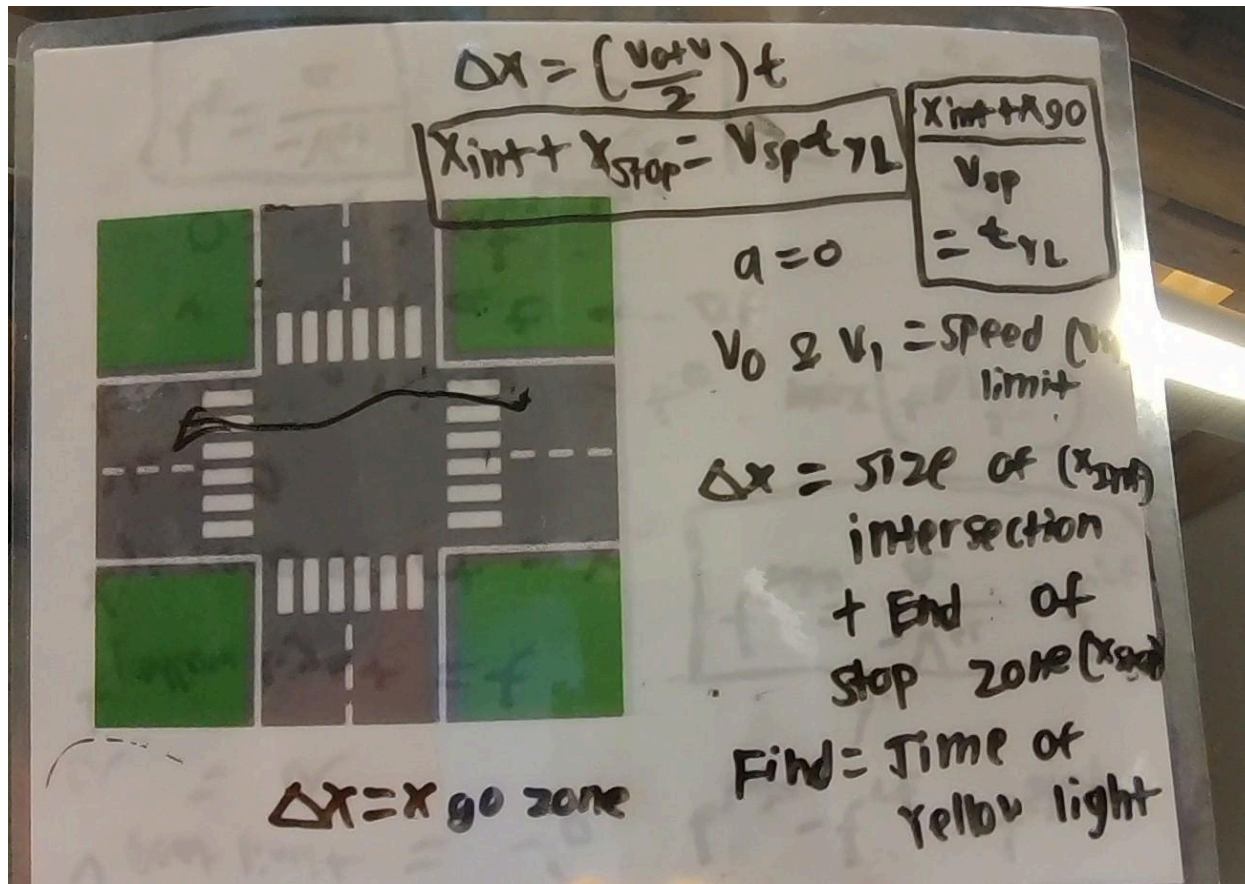 Δx = (v₀+v/2) t
Xint + Xstop = Vsp t YL
Xint + xgo
Vsp
= t YL
a = 0
V₀ & V₁ = speed
limit
Δx = size of (xint)
intersection
+ End of
stop zone (xstop)
Find = Time of
Yellow light
Δx = x go zone